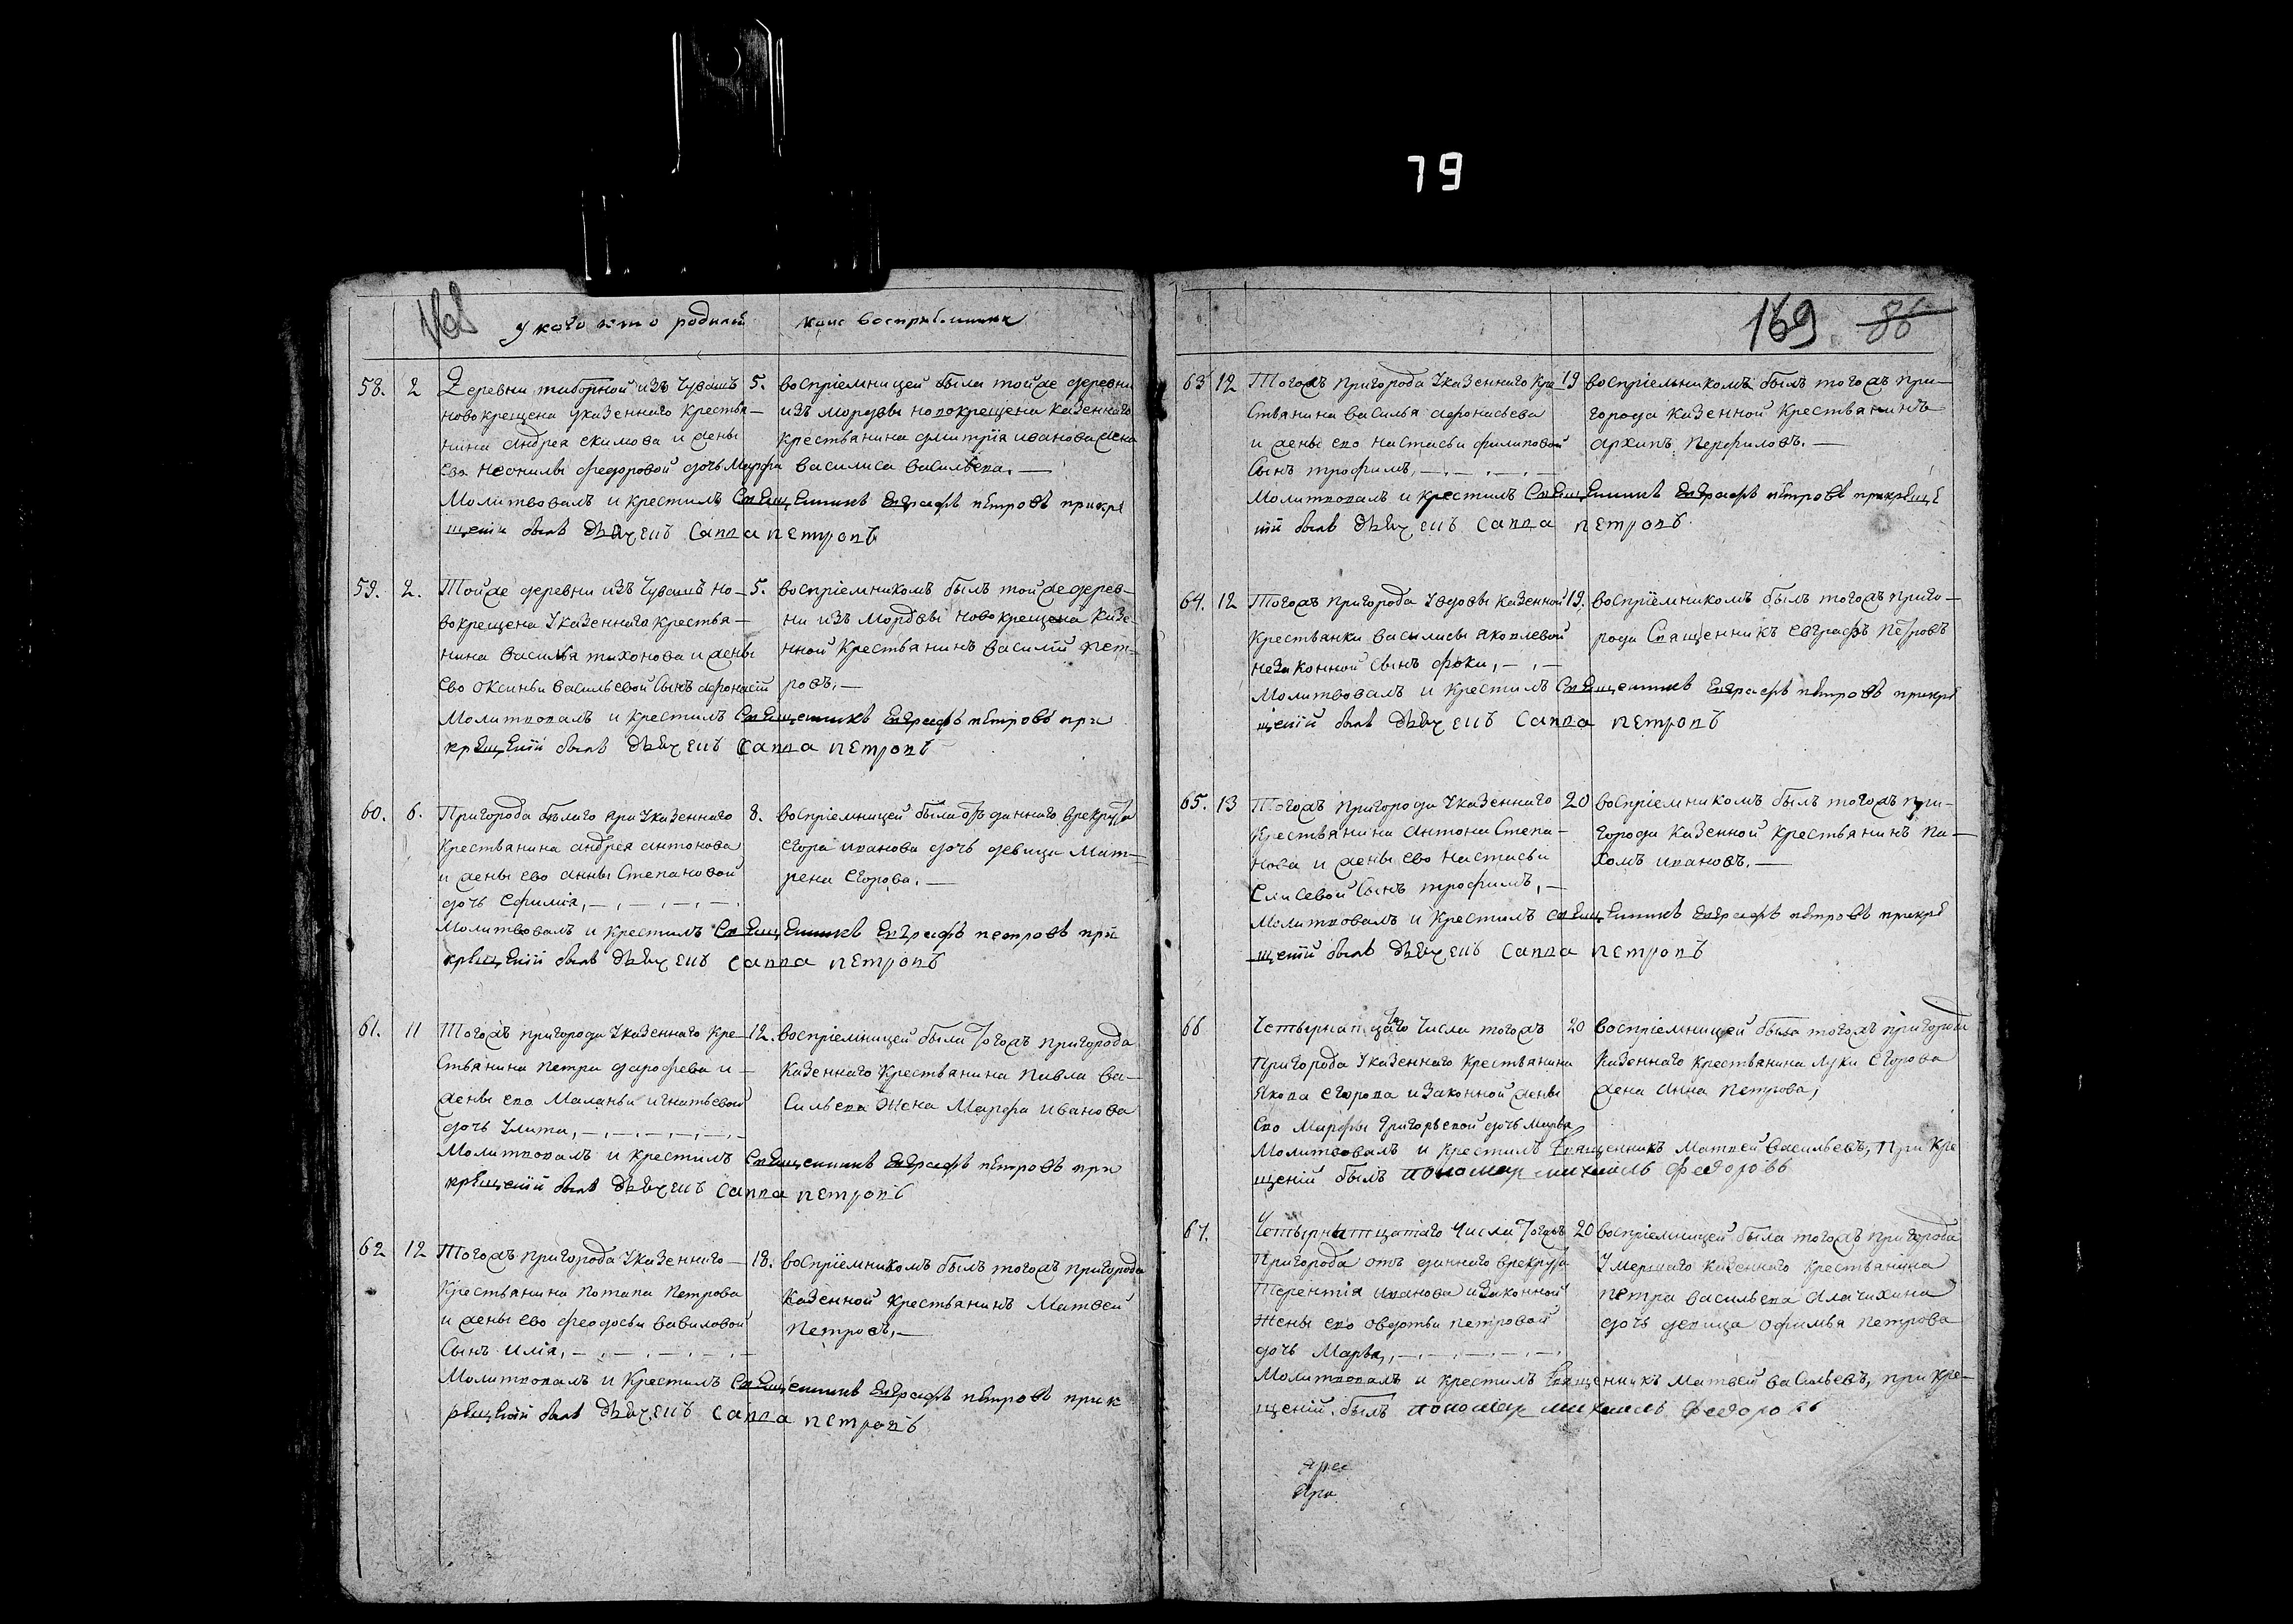 79
168
у кого кто родился
кто восприемники
58. 2
Деревни таборной изъ Чувашъ
новокрещена у казеннаго крестья—
нина андрея екимова и жены
ево неонилы федоровой дочь Марфа
5. воспріемницей была тойже деревни
изъ мордвы новокрещена казеннаго
крестьянина дмитрія иванова жена
василиса васильева.—
Молитвовалъ и крестилъ Священникъ Евграфъ петровъ прикре
щеніи былъ дьячекъ Савва петровъ
59. 2.
Тойже деревни изъ Чувашъ но—
вокрещена У казеннаго крестья—
нина василья тихонова и жены
ево оксиньи васильевой сынъ афонасій
5. воспріемникомъ былъ тойже дерев—
ни изъ Мордвы новокрещена казе
нной крестьянинъ василій пет—
ровъ.—
Молитвовалъ и крестилъ Священникъ Евграфъ петровъ при
крещеніи былъ дьячекъ Савва петровъ
60. 6.
Пригорода бѣлаго яра У казеннаго
крестьянина андрея антонова
и жены ево анны Степановой
дочь Ефимія,—,—,—,—.
8. воспріемницей была отъ даннаго врекруты
егора иванова дочь девица Мат—
рена Егорова.—
Молитвовалъ и крестилъ Священникъ Евграфъ петровъ при
крещеніи былъ дьячекъ Савва петровъ
61. 11
Тогожъ пригорода У казеннаго кре—
стьянина петра дарофева и—
жены ево Маланьи игнатьевой
дочь Улита,—,—,—,—,—,—
12. воспріемницей была Тогожъ пригорода
казеннаго крестьянина павла ва—
сильева Жена Марфа иванова
Молитвовалъ и крестилъ Священникъ Евграфъ петровъ при
крещеніи былъ дьячекъ Савва петровъ
62 12
Тогожъ пригорода У казеннаго—
крестьянина потапа петрова
и жены ево феодосьи вавиловой
сынъ илія,—,—,—,—,—
18. воспріемникомъ былъ тогожъ пригорода
казенной крестьянинъ Матвей
петровъ,—
Молитвовалъ и крестилъ Священникъ Евграфъ петровъ прик
рещеніи былъ дьячекъ Савва петровъ
169 86
63 12
Тогожъ пригорода У казеннаго кре—
стьянина василья афонасьева
и жены ево настасьи филиповой
сынъ трофимъ,—,—,—,—
19 воспріемникомъ былъ тогожъ при—
города казенной крестьянинъ
архипъ перфиловъ.—
Молитвовалъ и крестилъ Священникъ Евграфъ петровъ прикреще
ніи былъ дьячекъ Савва петровъ.
64. 12
Тогожъ пригорода У вдовы казенной
крестьянки василисы яковлевой
незаконной сынъ фока,—,—
19. воспріемникомъ былъ тогожъ приго—
рода Священникъ евграфъ петровъ
Молитвовалъ и крестилъ Священникъ Евграфъ петровъ прикре
щеніи былъ дьячекъ Савва петровъ
65. 13
Тогожъ пригорода У казеннаго
крестьянина антона Степа—
нова и жены ево настасьи
Елисевой сынъ трофимъ,—
20 воспріемникомъ былъ тогожъ при—
города казенной крестьянинъ па—
хомъ ивановъ.—
Молитвовалъ и крестилъ Священникъ Евграфъ петровъ прикре
щеніи былъ дьячекъ Савва петровъ
66
Четырнатцатаго числа тогожъ
Пригорода У казеннаго крестьянина
Якова егорова и законной жены
Ево Марфы Григорьевой дочь Марва
20 воспріемницей была тогожъ пригорода
казеннаго крестьянина луки Егорова
жена анна петрова,
Молитвовалъ и крестилъ Священникъ Матвей васильевъ, При кре
щеніи былъ пономар михаилъ федоровъ
67.
Четырнатцатаго числа Тогожъ
Пригорода отъ даннаго врекруты
Терентія иванова и законной
Жены ево овдотьи петровой
дочь Марва,,—,—,—,—,—.
20 воспріемницей была тогожъ пригорода
Умершаго казеннаго крестьянина
петра васильева Алачихина
дочь девица офимья петрова
Молитвовалъ и крестилъ Священникъ Матвей васильевъ, при кре—
щеніи былъ пономар михаилъ федоровъ